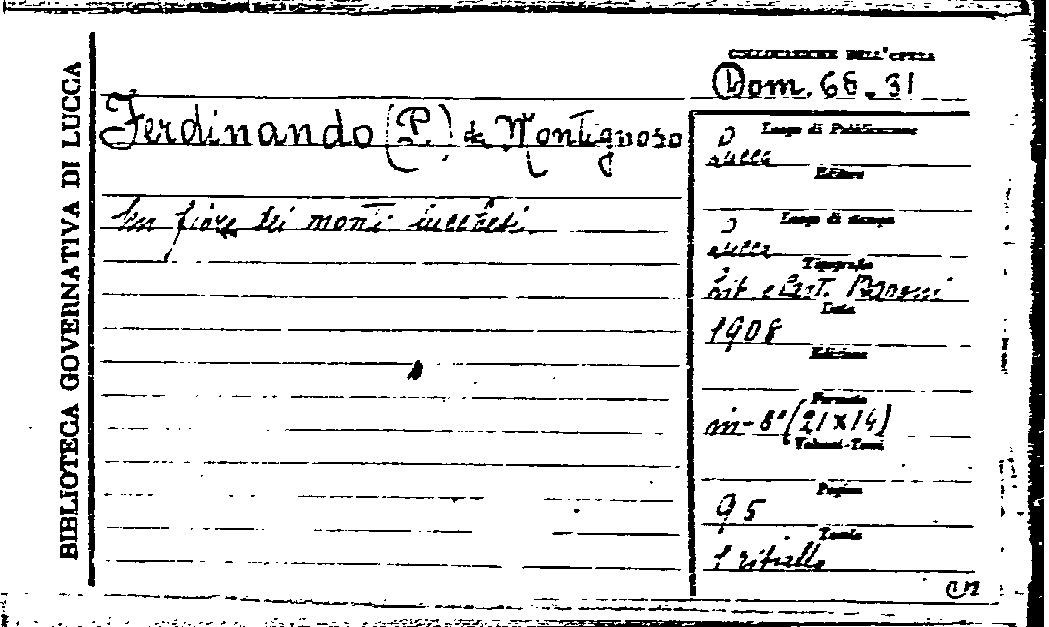 BIBLIOTECA GOVERNATIVA DI LUCCA
COLLOCAZIONE DELL'OPERA
Dom. 68.31
Ferdinando (P.) da Montignoso
Un fiore dei monti lucchesi.
Luogo di Pubblicazione
Lucca
Editore
Luogo di stampa
Lucca
Tipografia
Lit. e Cart. Baroni
Data
1908
Edizione
Formato
in-8° (21x14)
Volumi-Tomi
Pagine
95
Tavole
1 ritratto